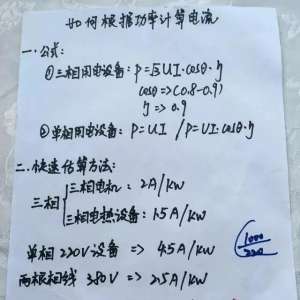 如何根据功率计算电流
一.公式:
①三相用电设备: P=√3UI·cosθ·η
cosθ=>(0.8-0.9)
η=>0.9
②单相用电设备: P=UI /P=UI·cosθ·η
二.快速估算方法:
三相
三相电机: 2A/KW
三相电热设备: 1.5A/KW
单相220V设备 => 4.5A/KW
1000/220
两根相线 380V => 2.5A/KW